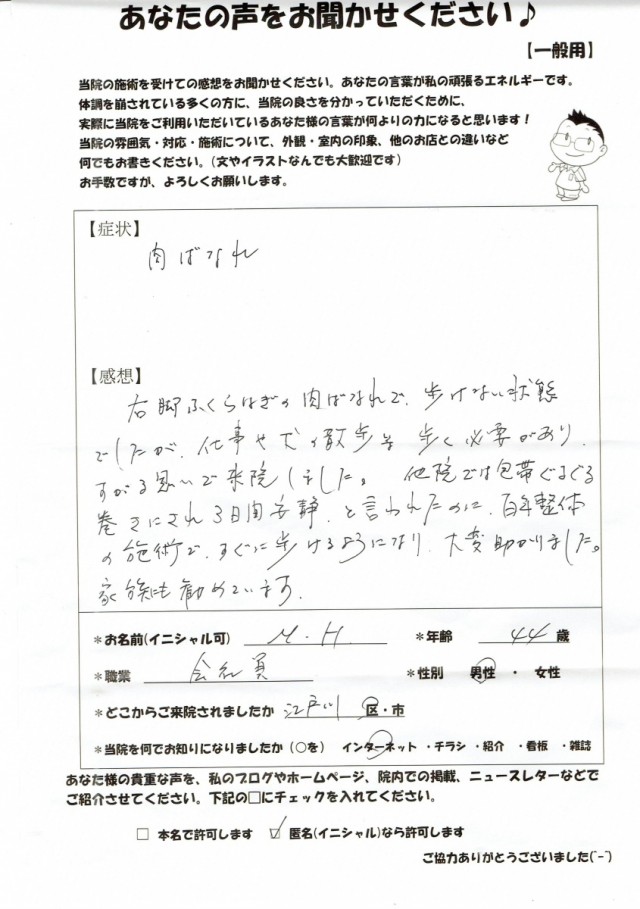 あなたの声をお聞かせください♪
【一般用】
当院の施術を受けての感想をお聞かせください。あなたの言葉が私の頑張るエネルギーです。
体調を崩されている多くの方に、当院の良さを分かっていただくために、
実際に当院をご利用いただいているあなた様の言葉が何よりの力になると思います！
当院の雰囲気・対応・施術について、外観・室内の印象、他のお店との違いなど
何でもお書きください。(文やイラストなんでも大歓迎です)
お手数ですが、よろしくお願いします。
【症状】
肉ばなれ
【感想】
右脚ふくらはぎの肉ばなれで、歩けない状態
でしたが、仕事や犬の散歩等歩く必要があり、
すがる思いで来院しました。他院では包帯ぐるぐる
巻きにされ3日間安静、と言われたのに、百年整体
の施術で、すぐに歩けるようになり、大変助かりました。
家族にも勧めています。
*お名前(イニシャル可) M.H *年齢 44 歳
*職業 会社員 *性別 男性 ・ 女性
*どこからご来院されましたか 江戸川 区・市
*当院を何でお知りになりましたか(○を) インターネット ・チラシ ・紹介 ・看板 ・雑誌
あなた様の貴重な声を、私のブログやホームページ、院内での掲載、ニュースレターなどで
ご紹介させてください。下記の□にチェックを入れてください。
□ 本名で許可します ☑ 匿名(イニシャル)なら許可します
ご協力ありがとうございました(^-^)